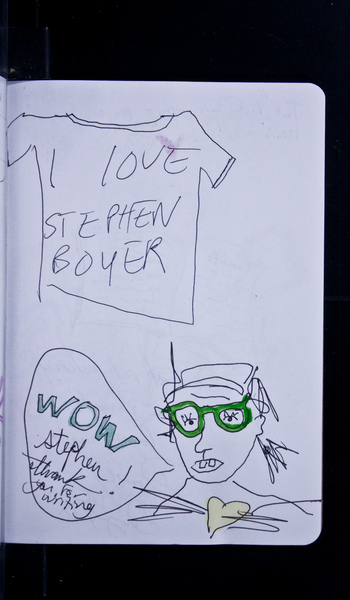 I LOVE
STEPHEN
BOYER
WOW
stephen
thank !
you for
writing